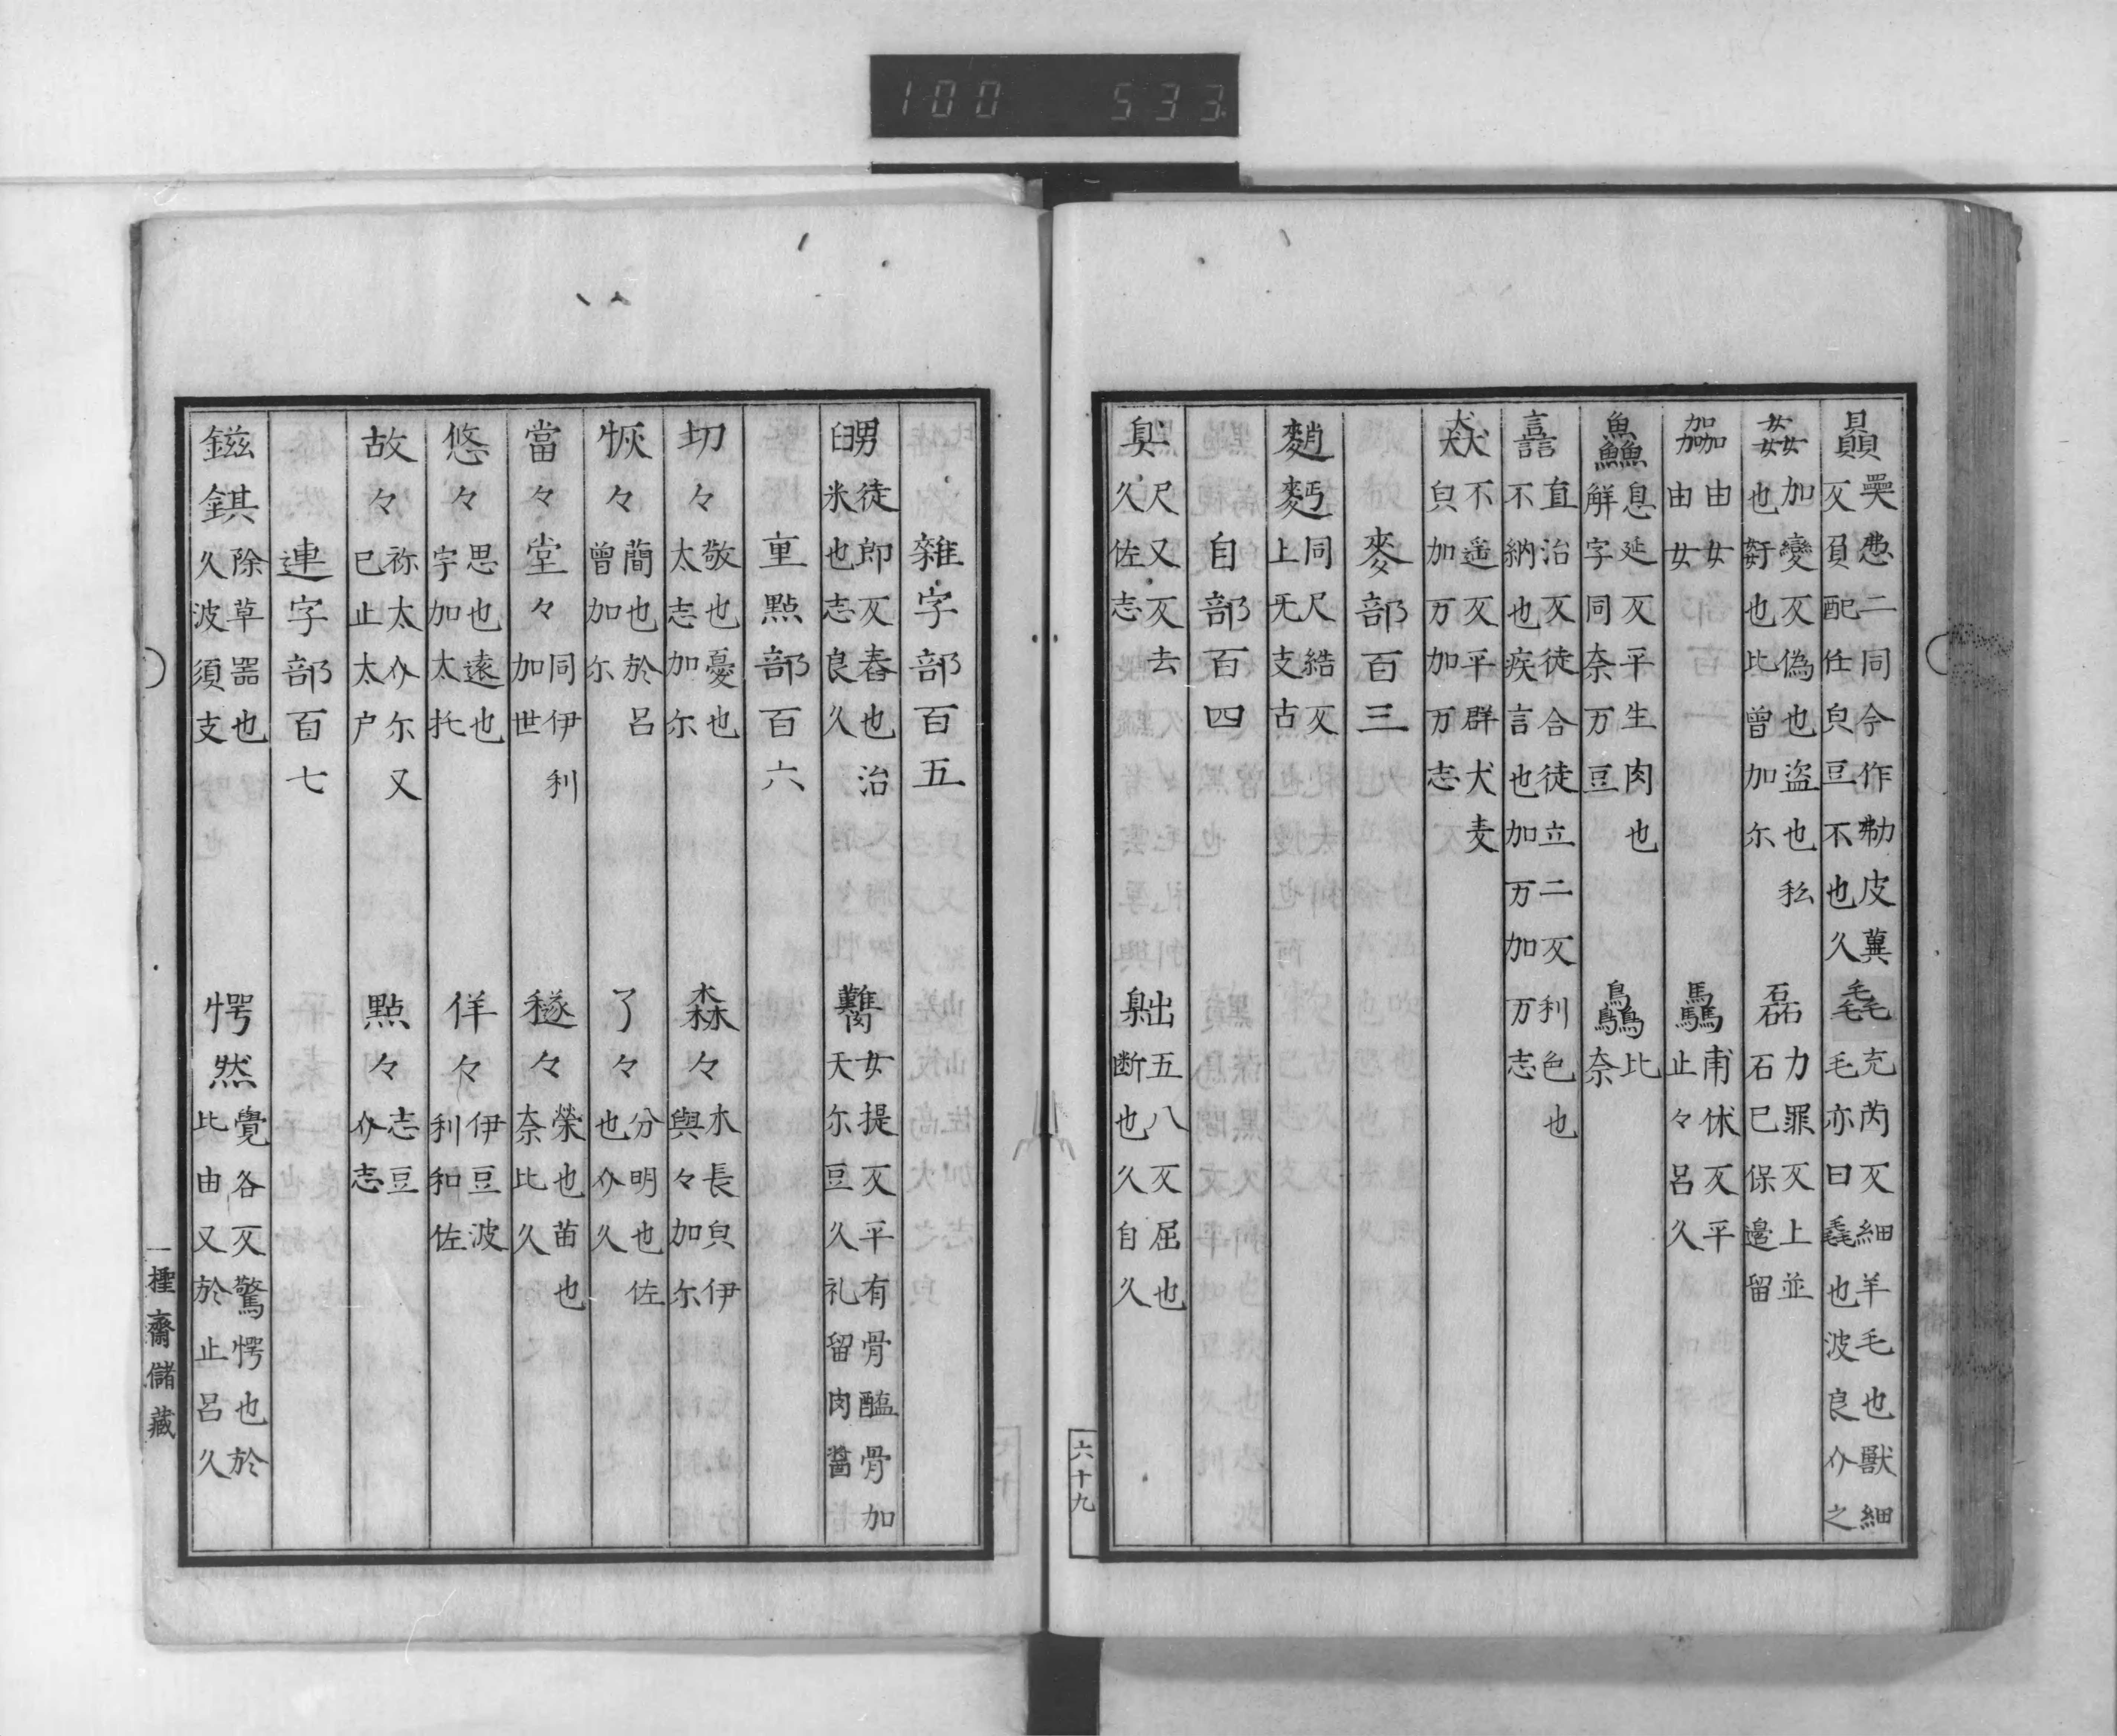 100 533
贔㚅𢛇二同今作勬皮冀
反負配任皃豆不也久
毳充芮反細羊毛也獸細
毛亦曰毳也波良介之
姦加變反偽也盜也私
也姧也比曽加尓
磊力罪反上並
石巳保邊留
由女
由女
驫甫休反平
止々呂久
鱻息延反平生肉也
解字同奈万豆
比
奈
譶直治反徒合徒立二反利色也
不納也疾言也加万加万志
猋不遥反平群犬麦
皃加万加万志
麥部百三
同尺結反
上旡支古
自部百四
臭尺又反去
久佐志
五八反屈也
断也久自久
六十九
雜字部百五
徒郎反舂也治
米也志良久
女提反平有骨醢骨加
天尓豆久礼留肉醬
重點部百六
切々敬也憂也
太志加尓
森々木長皃伊
與々加尓
恢々蕑也於呂
曽加尓
了々分明也佐
也介久
當々堂々同伊利
加世
𥡴々榮也苗也
奈比久
悠々思也遠也
宇加太托
佯々伊豆波
利和佐
故々祢太介尓又
巳止太户
點々志豆
介志
連字部百七
鎡錤除草器也
久波須支
愕然覺各反驚愕也於
比由又於止呂久
一棰齋儲藏